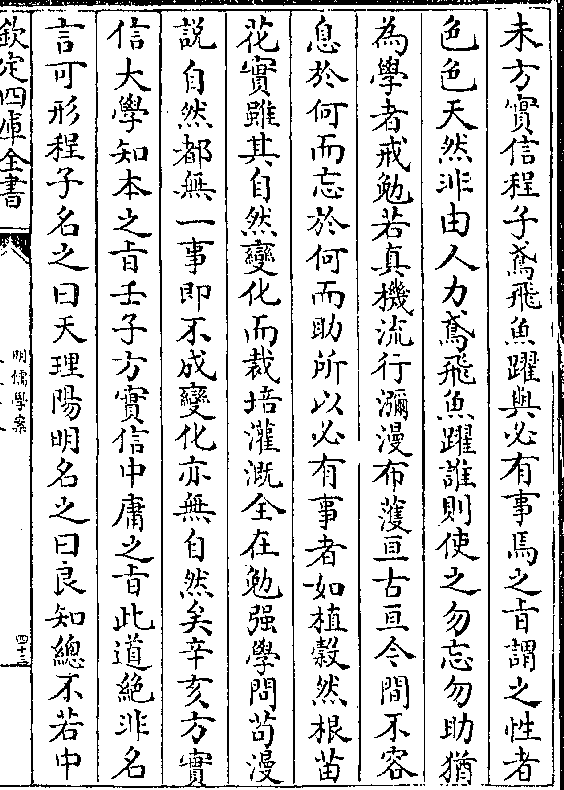 未方實信程子鳶飛魚躍與必有事焉之㫖謂之性者
色色天然非由人力鳶飛魚躍誰則使之勿忘勿助猶
為學者戒勉若真機流行瀰漫布䕶亘古亘今間不容
息於何而忘於何而助所以必有事者如植穀然根苗
花實雖其自然變化而栽培灌溉全在勉强學問茍漫
説自然都無一事即不成變化亦無自然矣辛亥方實
信大學知本之㫖壬子方實信中庸之㫖此道絶非名
言可形程子名之曰天理陽明名之曰良知總不若中
欽定四庫全書
明儒學案
四十三